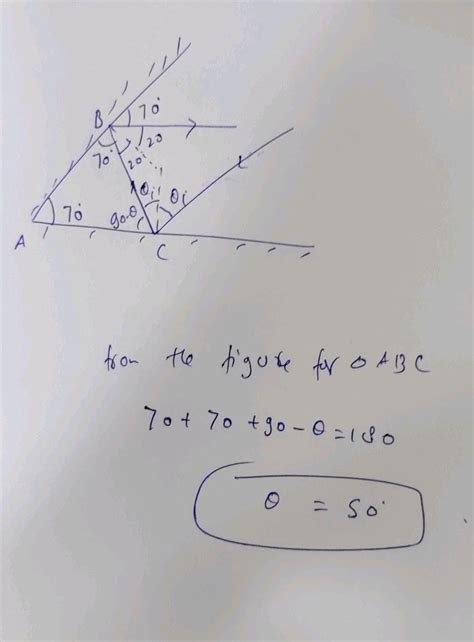 B 70°
20
70° 20° θi θi L
A 70° 90-θ
C
from the figure for △ABC
70 + 70 + 90 - θ = 180
θ = 50°